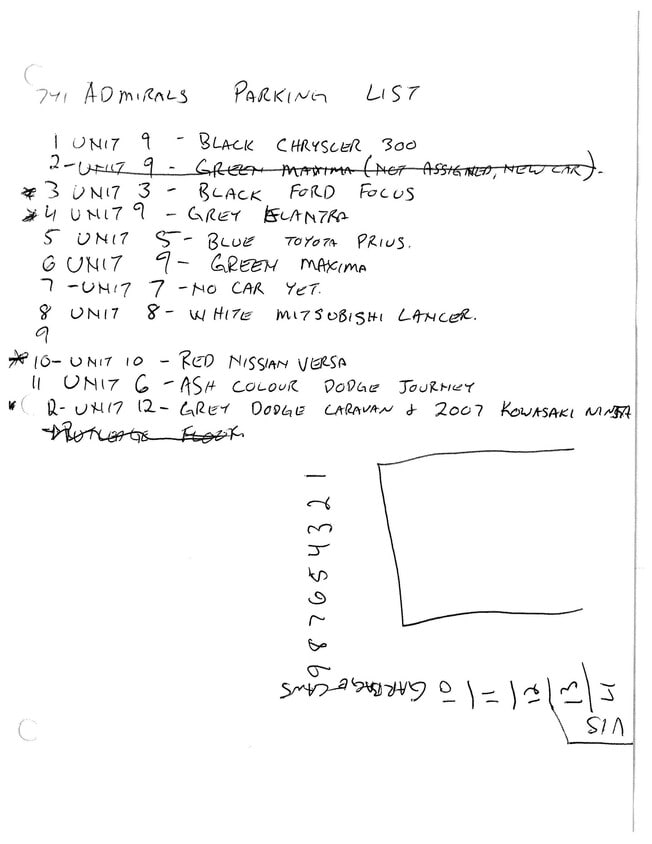 741 ADMIRALS PARKING LIST
1 UNIT 9 - BLACK CHRYSCLER 300
2-UNIT 9 - GREEN MAXIMA (NOT ASSIGNED, NEW CAR).
* 3 UNIT 3 - BLACK FORD FOCUS
* 4 UNIT 9 - GREY ELANTRA
5 UNIT 5 - BLUE TOYOTA PRIUS.
6 UNIT 9 - GREEN MAXIMA
7 -UNIT 7 - NO CAR YET.
8 UNIT 8 - WHITE MITSUBISHI LANCER.
9
* 10- UNIT 10 - RED NISSIAN VERSA
11 UNIT 6 - ASH COLOUR DODGE JOURNEY
* 12- UNIT 12 - GREY DODGE CARAVAN & 2007 KOWASAKI NINJA
1
2
3
4
5
6
7
8
9
GARBAGE CANS
10
11
12
13
14
VIS